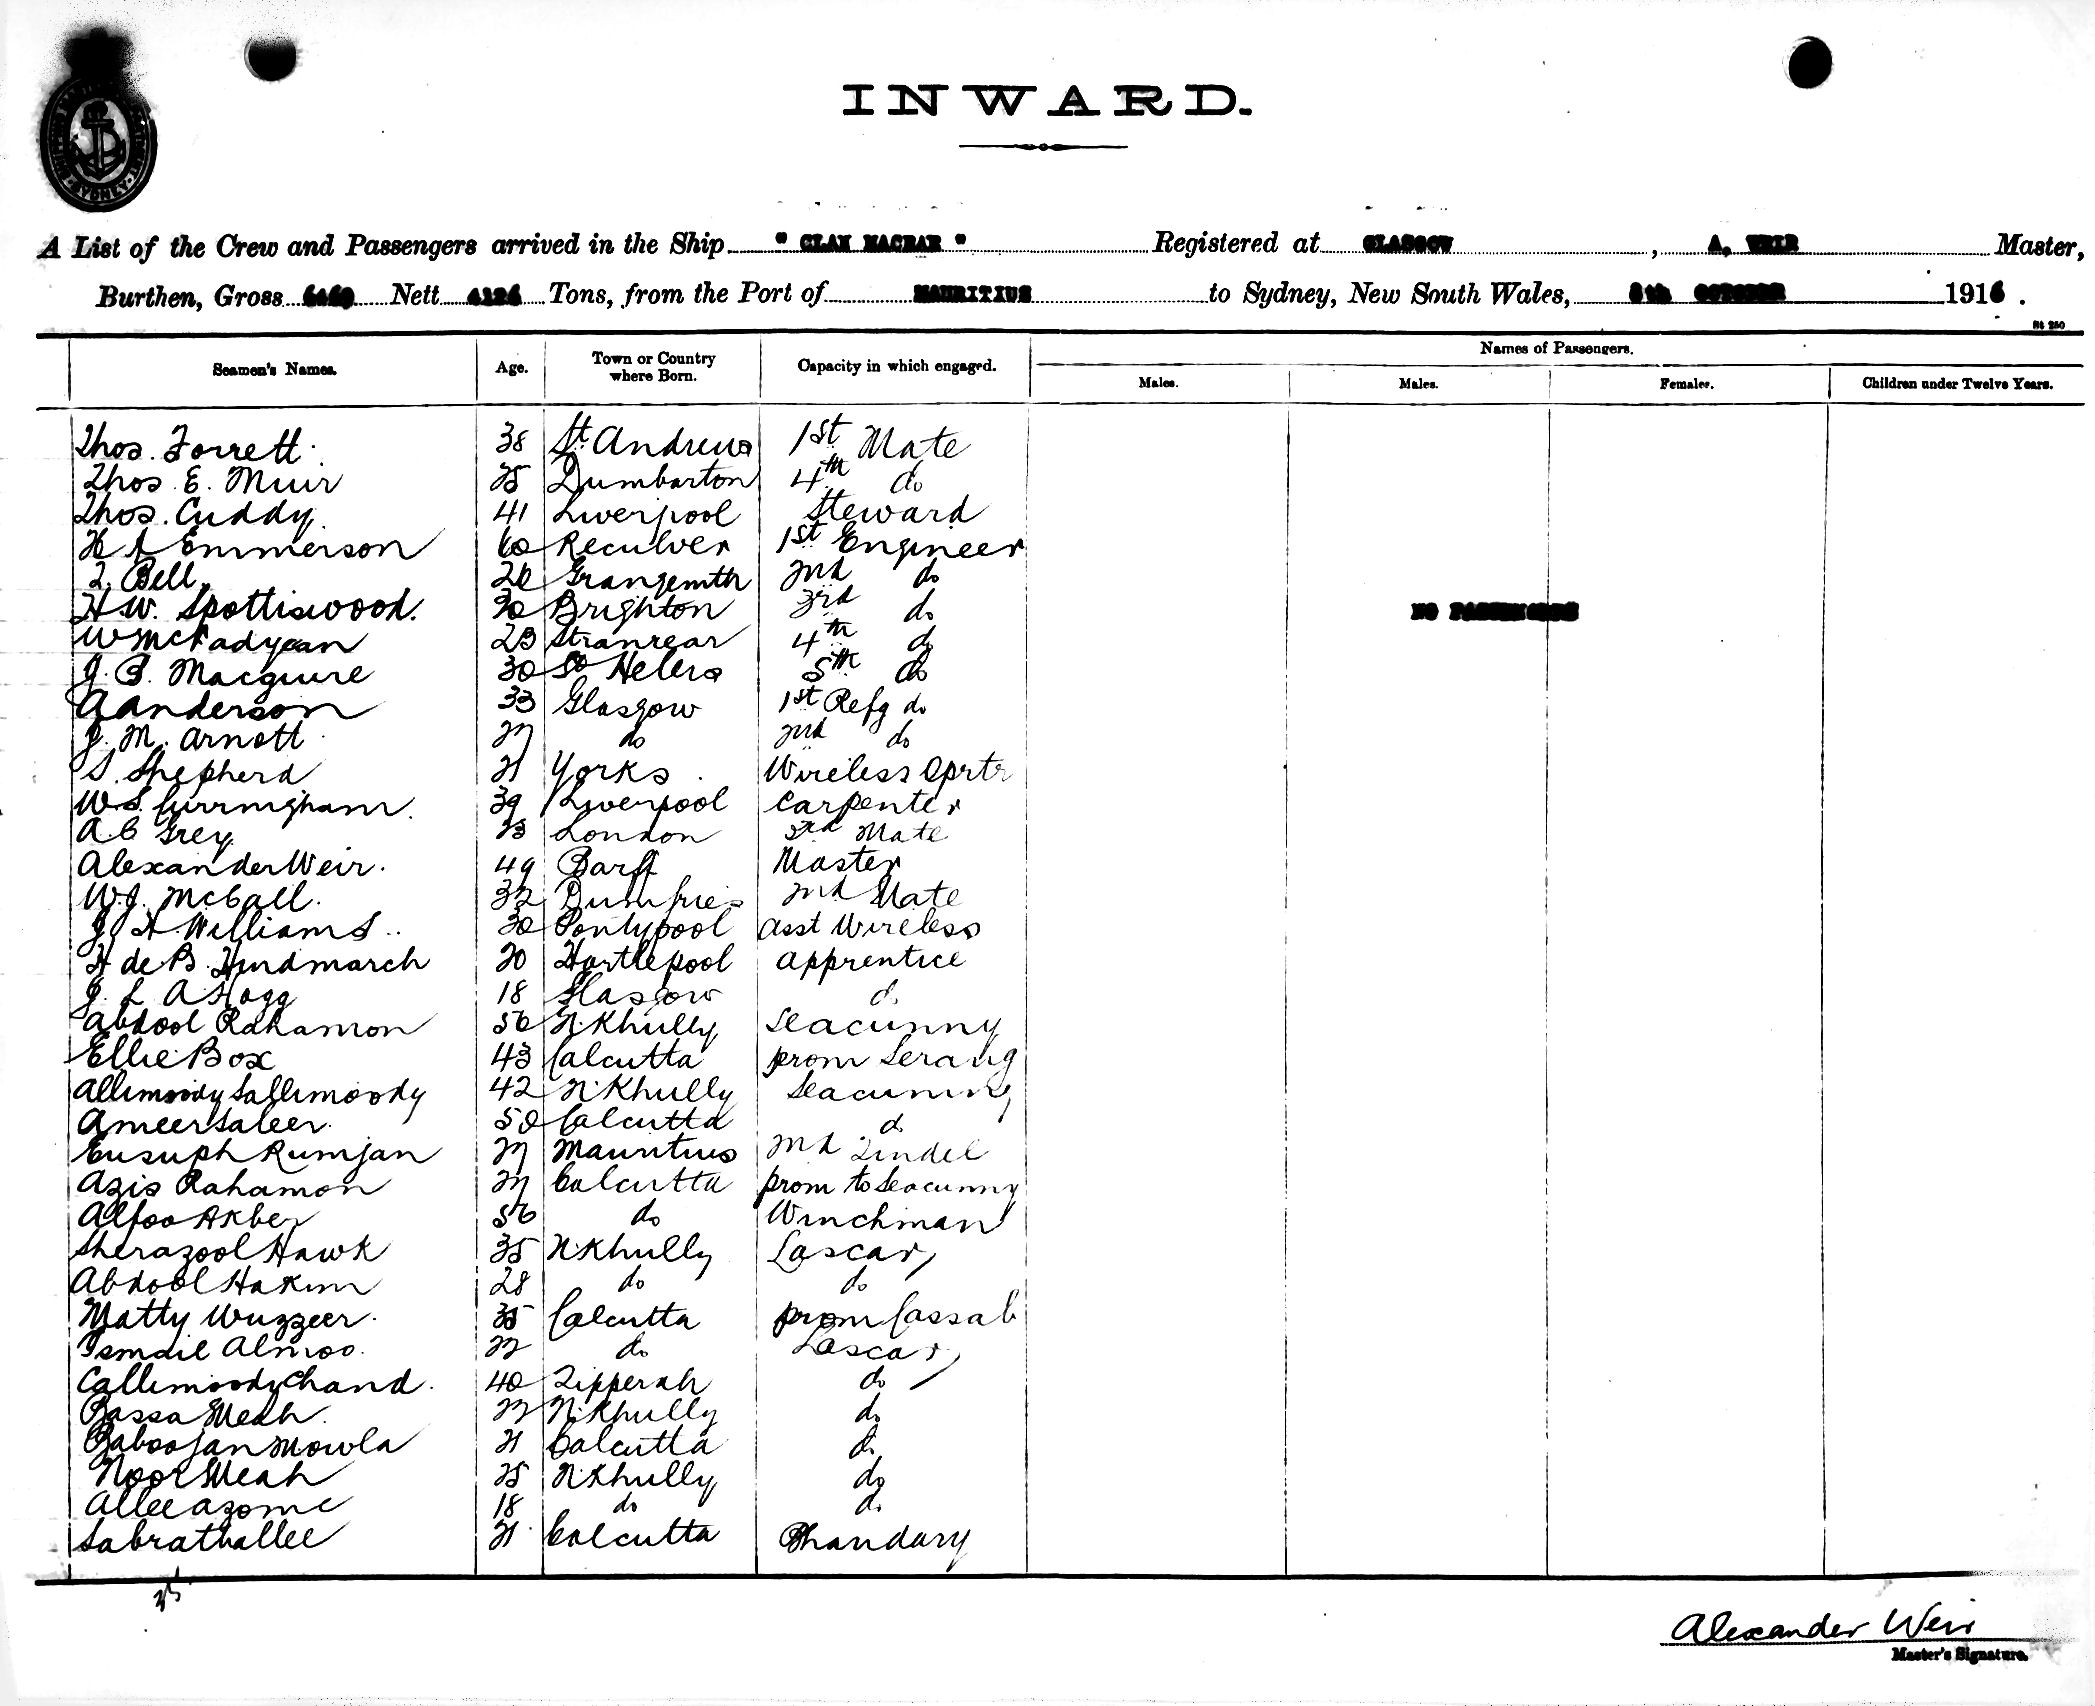 INWARD.
A List of the Crew and Passengers arrived in the Ship " CLAN MACBAR " Registered at GLASGOW , A. WEIR Master,
Burthen, Gross Nett Tons, from the Port of MAURITIUS to Sydney, New South Wales, 8th OCTOBER 1916.
Seamen's Names. Age. Town or Country where Born. Capacity in which engaged. Names of Passengers.
Males. Males. Females. Children under Twelve Years.
Thos. Forrett 38 St. Andrews 1st Mate
Thos. E. Muir 25 Dumbarton 4th do
Thos. Cuddy 41 Liverpool Steward
H A Emmerson 60 Reculver 1st Engineer
T. Bell Grangemth 2nd do
H W. Spottiswood. 30 Brighton 3rd do
NO PASSENGERS
W McFadyean 23 Stranrear 4th do
J. B. Macguire 30 St Helens 5th do
A Anderson 33 Glasgow 1st Refg do
J. M. Arnott 27 do 2nd do
S. Shepherd 21 Yorks. Wireless Oprtr
W. S. Cunningham. 39 Liverpool Carpenter
A C Grey 23 London 3rd Mate
Alexander Weir. 49 Banff Master
W. J. McCall. 32 Dumfries 2nd Mate
J. H. Williams.. 30 Pontypool Asst Wireless
H de B. Hindmarch 20 Hartlepool Apprentice
J. L A Hogg 18 Glasgow do
Abdool Rahamon 56 N. Khully Seacunny
Ellie Box 43 Calcutta prom Serang
Allimoody Sallimoody 42 N. Khully Seacunny
Ameer Saleer. 50 Calcutta do
Eusuph Rumjan 27 Mauritius 2nd Tindel
Azis Rahamon 27 Calcutta prom to Seacunny
Alfoo Akber 56 do Winchman
Sherazool Hawk 35 N Khully Lascar,
Abdool Hakim 28 do do
Matty Wuzzeer. 35 Calcutta prom Cassab
Ismail Almoo. 22 do Lascar,
Callimoody Chand. 40 Tipperah do
Bassa Meah. 22 N. Khully do
Baboojan Mowla 21 Calcutta do
Noor Meah 25 N Khully do
Allee Azome 18 do do
Sabrathallee 21 Calcutta Bhandary
35
Alexander Weir
Master's Signature.